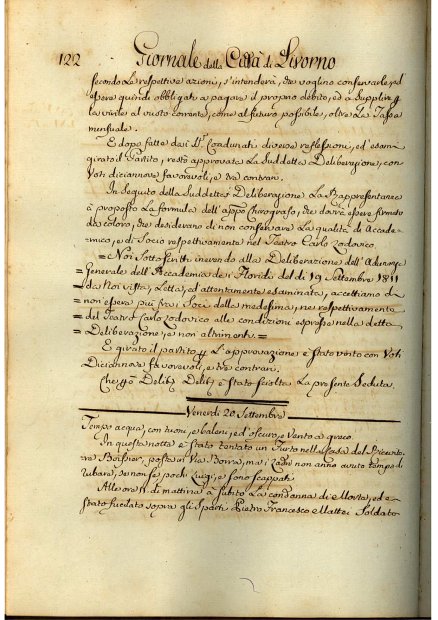 122 Giornale della Città di Livorno
secondo Le respettive azioni, s'intenderà, che voglino conservarle, ed
essere quindi obbligati a pagare il proprio debito, ed a supplire
la virile al vuoto corrente, come al futuro possibile, oltre La Tassa
mensuale.
E dopo fatte dai Sig.ri Coadunati diverse reflessioni, ed esami
girato il Partito, restò approvata La Suddetta Deliberazione, con
Voti diciannove favorevoli, e tre contrari.
In seguito della suddetta Deliberazione La Rappresentanza
à proposto La formula dell' Chirografo, che dovrà essere firmato
da coloro, che desiderano di non conservare La qualità di Accade-
mico, e di Socio respettivamente nel Teatro Carlo Lodovico.
= Noi Sottoscritti inerendo alla Deliberazione dell' Adunanza
= Generale dell' Accademia dei Floridi del dì 19 Settembre 1811
= da Noi vista, Letta, ed attentamente esaminata, accettiamo di
= non essere più fra i Soci della medesima, ne respettivamente
= del Teatro Carlo Lodovico alle condizioni espresse nella detta
= Deliberazione, e non altrimenti =
E girato il partito L' approvazione è stato vinto con Voti
Diciannove favorevoli, e tre contrari.
Che è stata sciolta La presente Seduta.
Venerdi 20 Settembre
Tempo acqua, con tuoni, e baleni, ed oscuro, e Vento a greco
In questa notte è stato tentato un Furto nella Casa del
Boissier, posta in Via Borra, ma i Ladri non anno avuto tempo di
rubare, se non se pochi Luigi, e sono scappati.
Alle ore 11 di mattina à subito La condanna di Morte, ed è
stato fucilato sopra gli Spalti Pietro Francesco Mattei Soldato